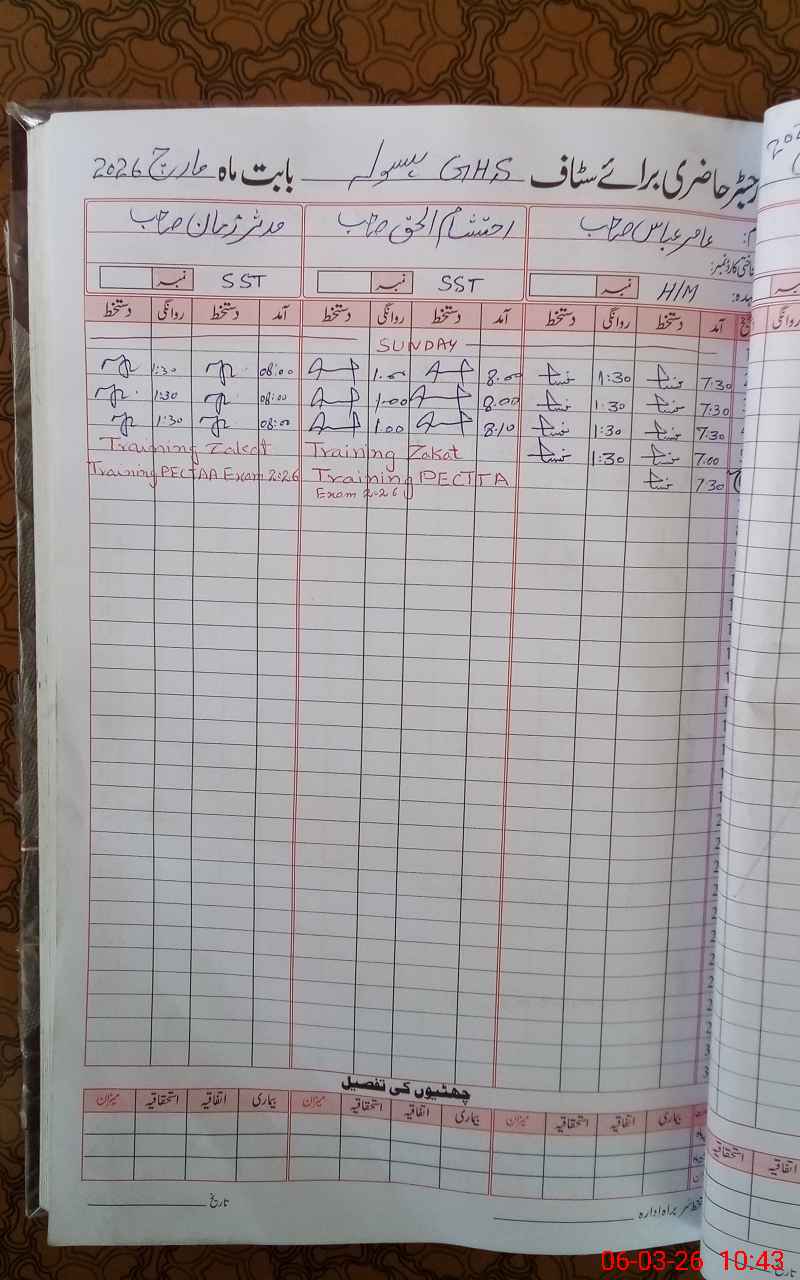 رجسٹر حاضری برائے سٹاف GHS بسولہ بابت ماہ مارچ 2026
عامر عباس صاحب احتشام الحق صاحب مدثر زمان صاحب
شناختی کارڈ نمبر:
عہدہ: H/M نمبر SST نمبر SST نمبر
آمد دستخط روانگی دستخط آمد دستخط روانگی دستخط آمد دستخط روانگی دستخط
SUNDAY
7:30 1:30 8.00 1.00 08:00 1:30
7:30 1:30 8.00 1.00 08:00 1:30
7:30 1:30 8.10 1.00 08:00 1:30
7:00 1:30 Training Zakat Training Zakat
7:30 Training PECTTA Exam 2026 Training PECTAA Exam 2026
چھٹیوں کی تفصیل
بیماری اتفاقیہ استحقاقیہ میزان بیماری اتفاقیہ استحقاقیہ میزان بیماری اتفاقیہ استحقاقیہ میزان
دستخط سربراہ ادارہ تاریخ
روانگی
اتفاقیہ استحقاقیہ
06-03-26 10:43